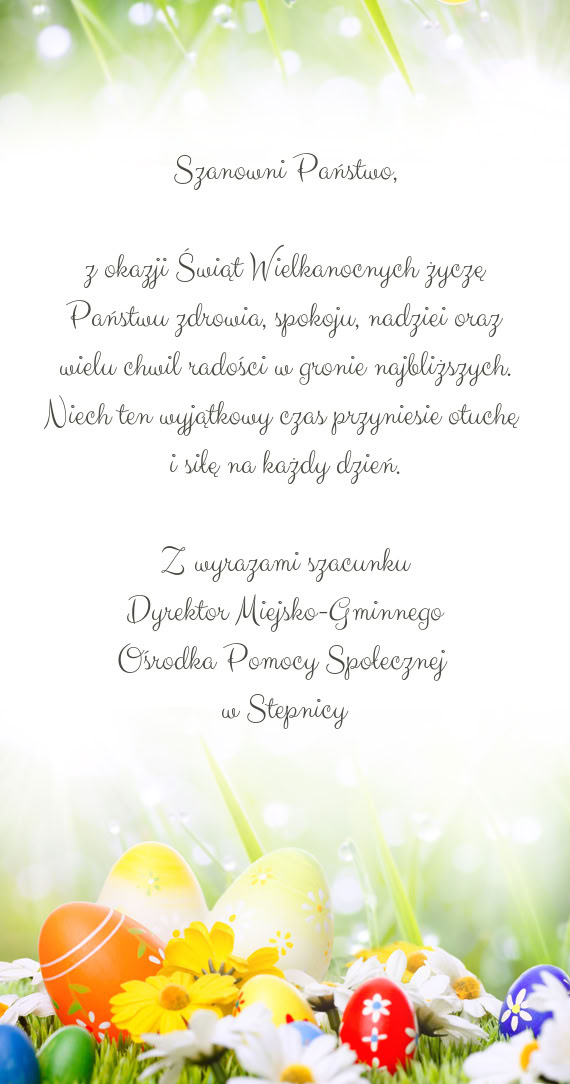 Szanowni Państwo,
z okazji Świąt Wielkanocnych życzę
Państwu zdrowia, spokoju, nadziei oraz
wielu chwil radości w gronie najbliższych.
Niech ten wyjątkowy czas przyniesie otuchę
i siłę na każdy dzień.
Z wyrazami szacunku
Dyrektor Miejsko-Gminnego
Ośrodka Pomocy Społecznej
w Stepnicy